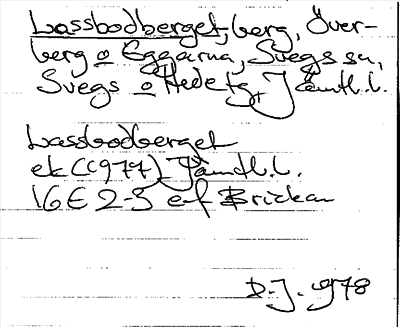 Lassbodberget, berg, Över-
berg o Eggarna, Svegs sn,
Svegs o Hede tg, Jämtl. l.
Lassbodberget
ek (1977) Jämtl. l.
16E 2-3 e-f Brickan
D. J. 1978